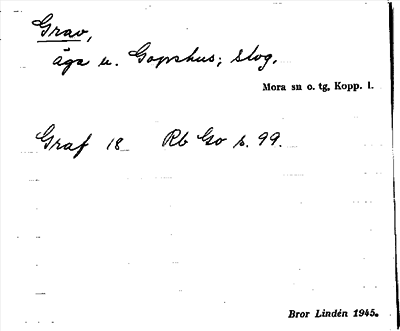 Grav,
äga u. Gopshus; skog.
Mora sn o. tg, Kopp. l.
Graf 18 Rb Go s. 99.
Bror Lindén 1945.